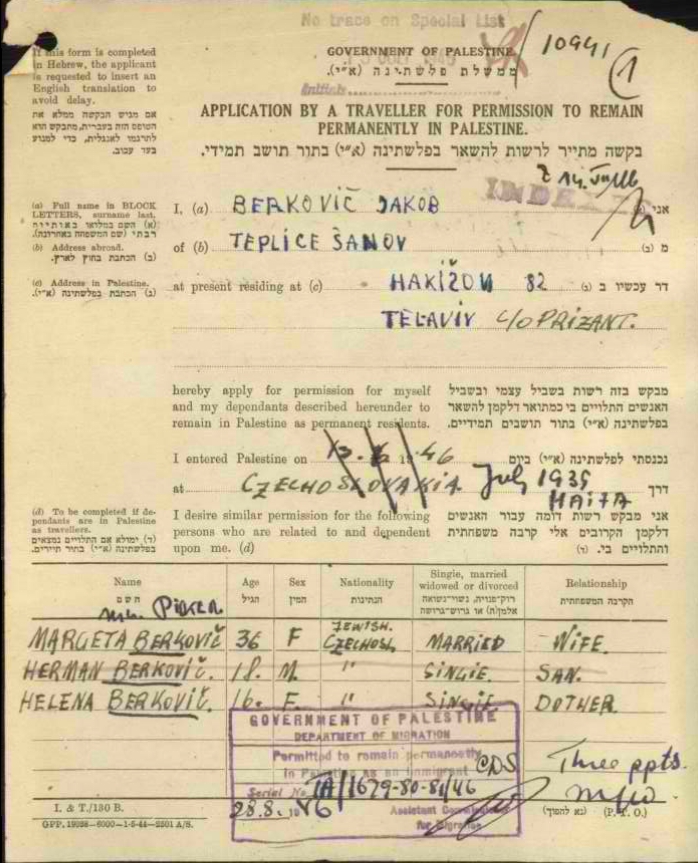 No trace on Special List
If this form is completed
in Hebrew, the applicant
is requested to insert an
English translation to
avoid delay.
אם מגיש הבקשה ממלא את
הטופס הזה בעברית, מתבקש הוא
לתרגמו לאנגלית, כדי למנוע
בעד עכוב.
GOVERNMENT OF PALESTINE.
ממשלת פלשתינה (א״י).
10991
1
Initials
APPLICATION BY A TRAVELLER FOR PERMISSION TO REMAIN
PERMANENTLY IN PALESTINE.
בקשה מתייר לרשות להשאר בפלשתינה (א״י) בתור תושב תמידי.
(a) Full name in BLOCK
LETTERS, surname last.
(א) השם במלואו באותיות
רבתי (שם המשפחה באחרונה).
(b) Address abroad.
(ב) הכתבת בחוץ לארץ.
(c) Address in Palestine.
(ג) הכתבת בפלשתינה (א״י).
I, (a) BERKOVIČ JAKOB אני
of (b) TEPLICE ŠANOV מ (ב)
at present residing at (c) HAKIŽON 82 דר עכשיו ב (ג)
TELAVIV c/o PRIZANT.
hereby apply for permission for myself
and my dependants described hereunder to
remain in Palestine as permanent residents.
מבקש בזה רשות בשביל עצמי ובשביל
האנשים התלויים בי כמתואר דלקמן להשאר
בפלשתינה (א״י) בתור תושבים תמידיים.
I entered Palestine on 13. 6 1946 נכנסתי לפלשתינה (א״י) ביום
at CZECHOSLOVAKIA July 1939 דרך
HAIFA
(d) To be completed if de-
pendants are in Palestine
as travellers.
(ד) ימולא אם התלויים נמצאים
בפלשתינה (א״י) בתור תיירים.
I desire similar permission for the following
persons who are related to and dependent
upon me. (d)
אני מבקש רשות דומה עבור האנשים
דלקמן הקרובים אלי קרבה משפחתית
והתלויים בי. (ד)
Name Age Sex Nationality Single, married
widowed or divorced Relationship
השם הגיל המין הנתינות רוק־פנויה, נשוי־נשואה
אלמן(ה) או גרוש־גרושה הקרבה המשפחתית
MARGETA BERKOVIČ 36 F JEWISH. CZECHOSL. MARRIED WIFE.
HERMAN BERKOVIČ. 18. M. " SINGIE. SAN.
HELENA BERKOVIČ. 16. F. " SINGIE. DOTHER.
GOVERNMENT OF PALESTINE
DEPARTMENT OF MIGRATION
Permitted to remain permanently
in Palestine as an immigrant
Serial No. IA/1679-80-81/46
28.8.1946
Assistant Commissioner
for Migration
Three ppts.
I. & T./130 B.
GPP. 19058—6000—1-5-44—2501 A/S.
(נא להפוך) (P. T. O.)